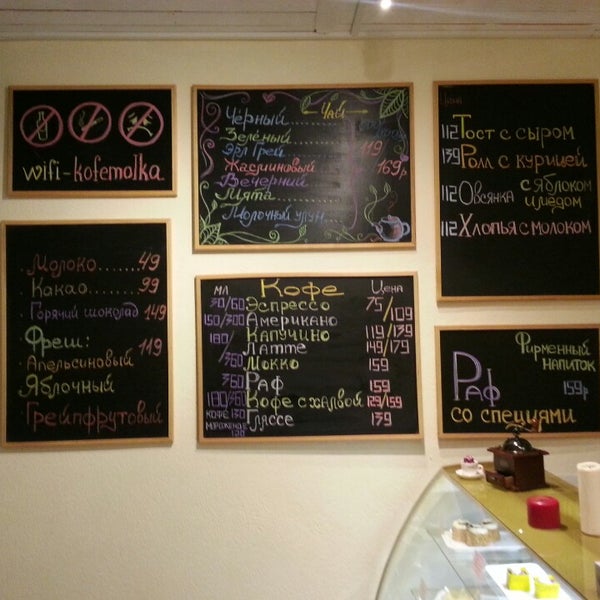 wifi-kofemolka
Молоко.......49
Какао.........99
Горячий шоколад 149
Фреш:
Апельсиновый 119
Яблочный
Грейпфрутовый
Чай
Чёрный
Зелёный
Эрл Грей 119
Жасминовый 169р
Вечерний
Мята
Молочный улун
мл Кофе Цена
30/60 Эспрессо 75/109
150/300 Американо
180/360 Капучино 119/139
Латте 149/179
Мокко 159
360 Раф 159
180/360 Кофе с халвой 129/159
кофе 130 Гляссе 139
мороженое 120
112 Тост с сыром
139 Ролл с курицей
112 Овсянка с яблоком и мёдом
112 Хлопья с молоком
Фирменный
напиток
Раф 159р
со специями